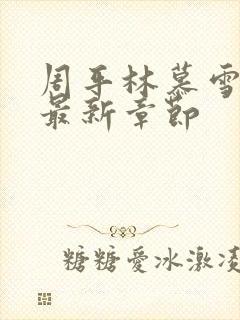 周平林慕雪
最新章節
糖糖愛冰激凌